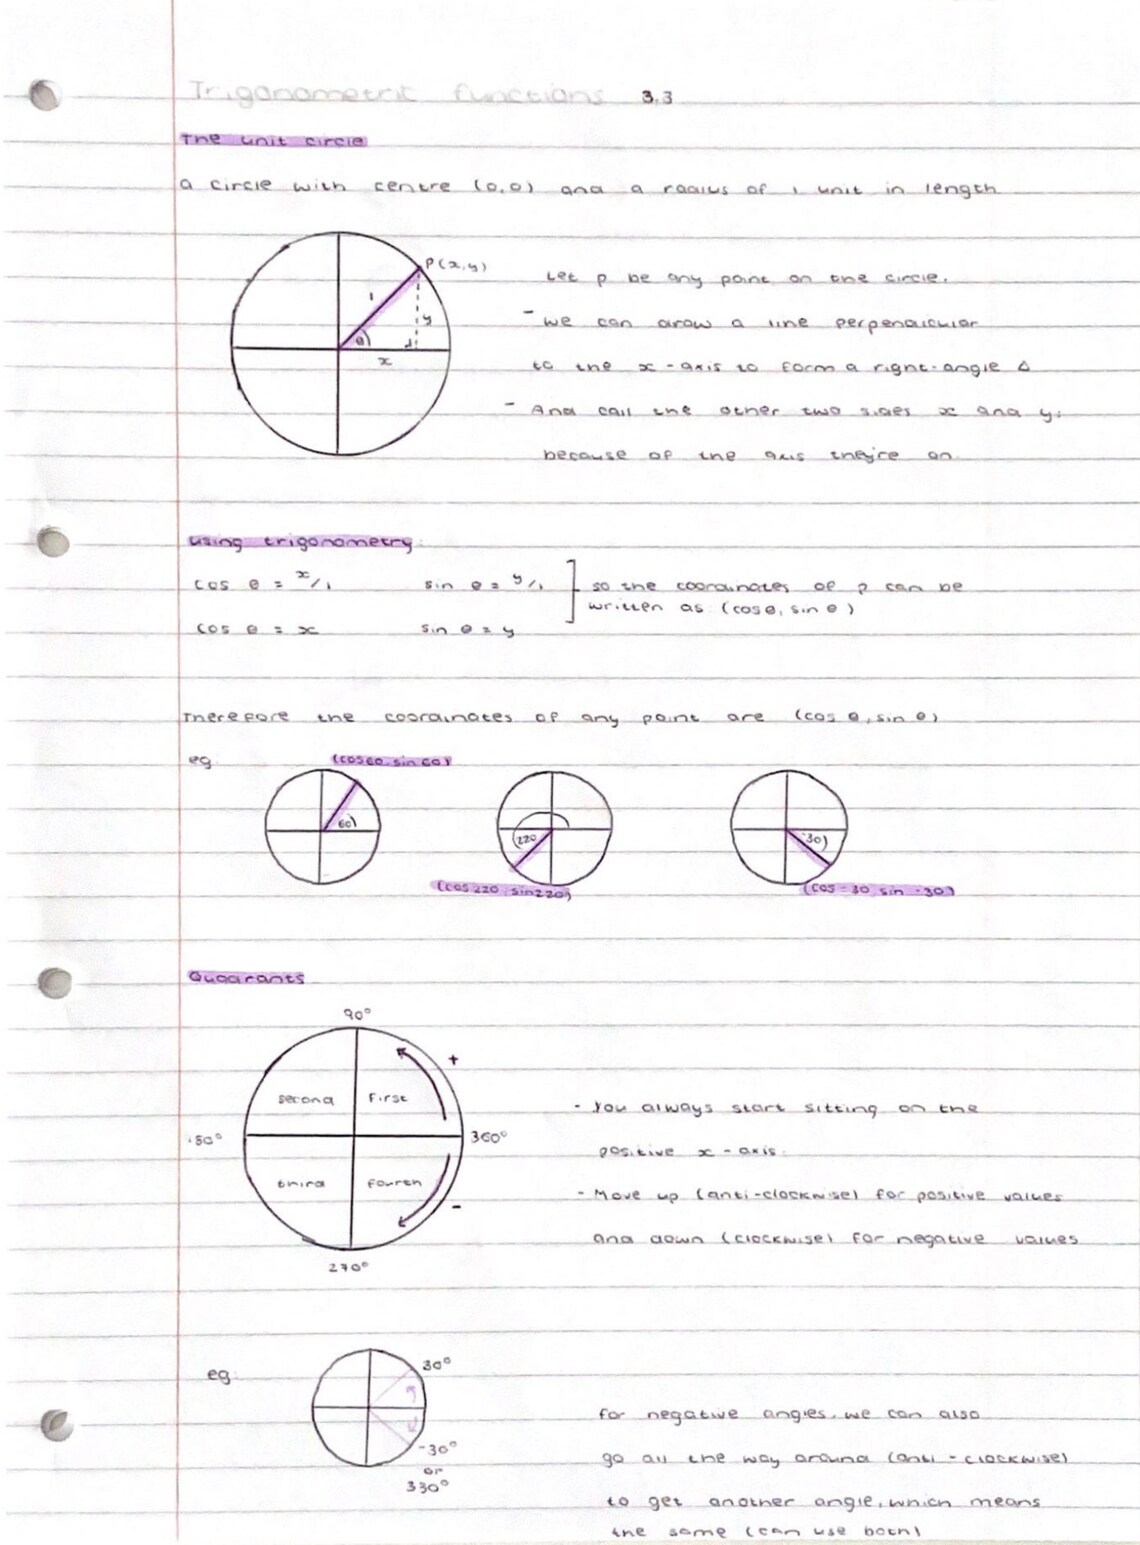 Trigonometric functions 3.3
The unit circle
a circle with centre (0,0) and a radius of 1 unit in length
P(x,y)
1
y
θ
x
Let P be any point on the circle.
- we can draw a line perpendicular
to the x-axis to form a right-angle Δ
- And call the other two sides x and y,
because of the axis they're on.
using trigonometry:
cos θ = x/1 sin θ = y/1 ] so the coordinates of P can be
written as (cosθ, sin θ)
cos θ = x sin θ = y
Therefore the coordinates of any point are (cos θ, sin θ)
eg.
(cos60, sin 60)
60
220
-30
(cos 220, sin220)
(cos -30, sin -30)
Quadrants
90°
+
second first
180° 360°
third fourth
-
270°
- You always start sitting on the
positive x-axis.
- Move up (anti-clockwise) for positive values
and down (clockwise) for negative values
eg.
30°
-30°
or
330°
for negative angles, we can also
go all the way around (anti-clockwise)
to get another angle, which means
the same (can use both)